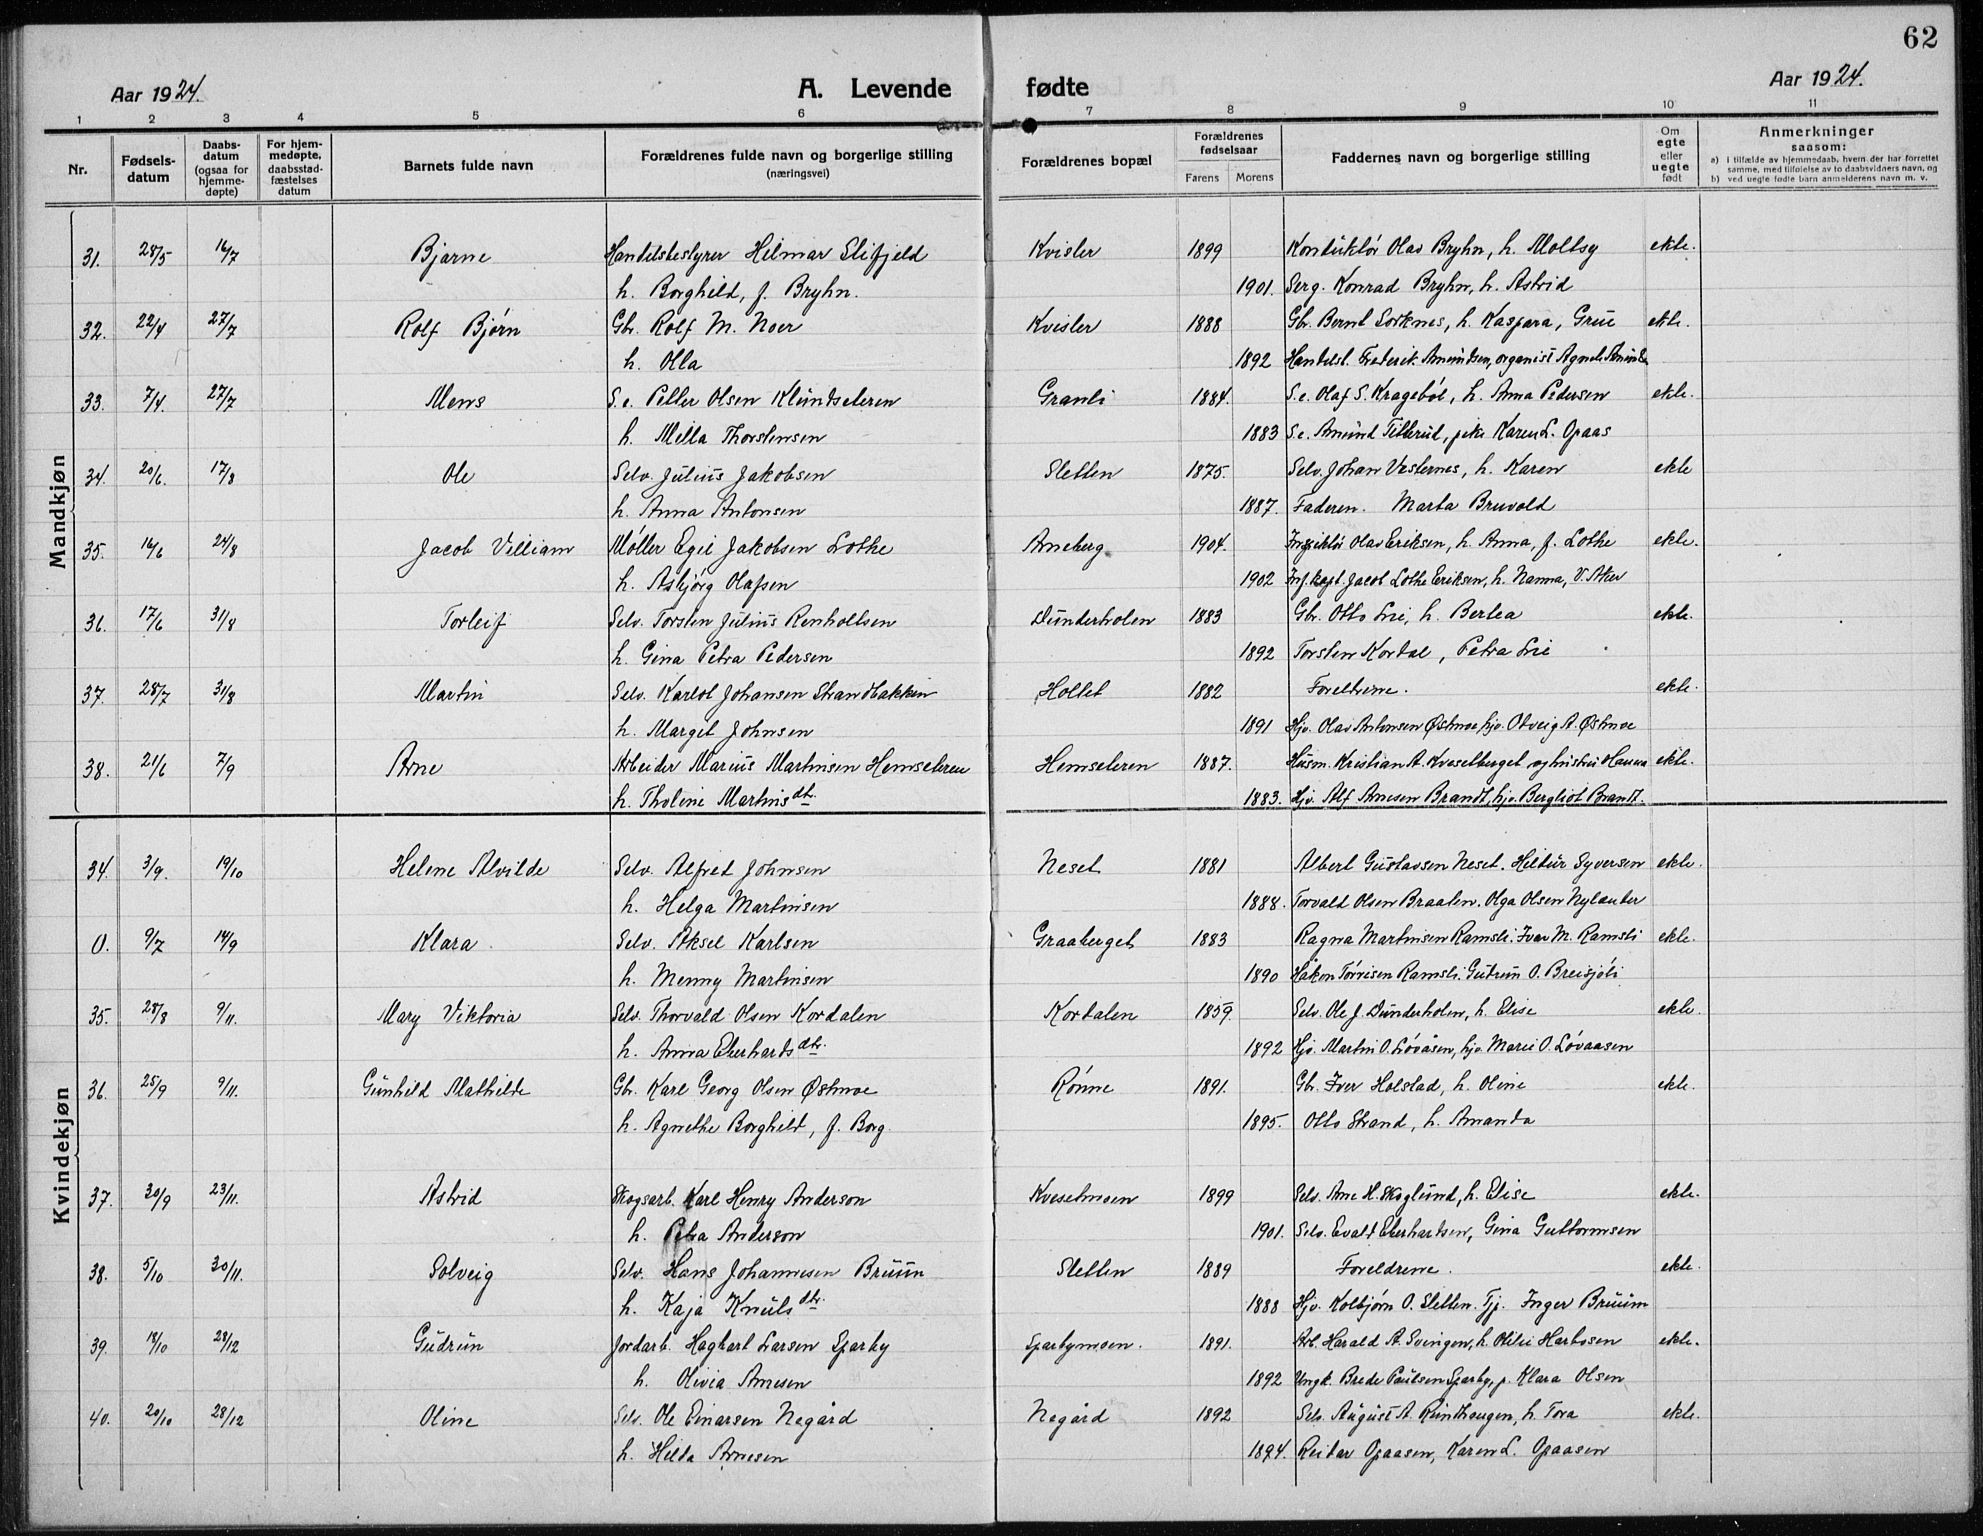 62
Aar 1924. A. Levende fødte Aar 1924.
1 2 3 4 5 6 7 8 9 10 11
Nr. Fødsels-datum Daabs-datum (ogsaa for hjemme-døpte) For hjem-medøpte, daabsstad-fæstelses datum Barnets fulde navn Forældrenes fulde navn og borgerlige stilling (næringsvei) Forældrenes bopæl Forældrenes fødselsaar Farens Morens Faddernes navn og borgerlige stilling Om egte eller uegte født Anmerkninger saasom:
a) i tilfælde av hjemmedaab, hvem der har forrettet samme, med tilføielse av to daabsvidners navn, og
b) ved uegte fødte barn anmelderens navn m. v.
Mandkjøn
31. 28/5 16/7 Bjarne Handelsbestyrer Helmar Slifjeld Kvisler 1899 Konduktør Olav Bryhn, h. Moltsy ekte.
h. Borghild, f. Bryhn. 1901. Serg. Konrad Bryhn, h. Astrid
32. 22/4 27/7 Rolf Bjørn Gbr. Rolf M. Noer Kvisler 1888 Gbr. Bernt Sorknes, h. Kaspara, Grue ekte.
h. Olla 1892 Handelsb. Frederik Amundsen, organist Agnes
33. 7/4. 27/7 Mens S.e. Petter Olsen Klundseteren Granli 1884. S.e. Olaf S. Kragebøl, h. Anna Pedersen ekte.
h. Milla Thorstensen 1883 S.e. Amund Titterud, pike Karen L. Opaas
34. 20/6. 17/8 Ole Selv. Julius Jakobsen Sletten 1875. Selv. Johan Vesternes, h. Karen ekte
h. Anna Antonsen 1887. Faderen. Marta Bruvold
35. 16/6 24/8 Jacob Villiam Møller Egil Jakobsen Lothe Arneberg 1904. Olav Eriksen, h. Anna, f. Lothe ekte.
h. Asbjørg Olafsen 1902 Inf.kapt. Jacob Lothe Eriksen, h. Nanna, V. Aker
36. 17/6 31/8 Torleif Selv. Torsten Julius Renholtsen Dunderholen 1883 Gbr. Otto Lie, h. Bertea ekte.
h. Gina Petra Pedersen 1892 Torsten Kordal, Petra Lie
37. 28/7 31/8 Martin Selv. Karlot Johansen Strandbakken Holtet 1882 Foreldrene. ekte.
h. Margit Johnsen 1891 Hjv. Olav Antonsen Østmoe, hjv. Olveig A. Østmoe
38. 21/6 7/9 Arne Arbeider Marius Martinsen Hemseteren Hemseteren 1887. Husm. Kristian A. Kveselberget og hustru Hanna ekte.
h. Tholine Martinsdtr. 1883. Hjv. Alf Arnesen Brandt, hjv. Bergliot Brandt.
Kvindekjøn
34. 3/9. 19/10 Helene Alvilde Selv. Alfred Johnsen Neset 1881 Albert Gustavsen Neset. Hildur Syversen ekte.
h. Helga Martinsen 1888. Torvald Olsen Braaten. Olga Olsen Nylander
0. 9/7 14/9 Klara Selv. Aksel Karlsen Graaberget 1883 Ragna Martinsen Ramsli. Ivar M. Ramsli ekte.
h. Menny Martinsen 1890 Håken Torrisen Ramsli. Gudrun O. Breisjøli
35. 28/8 9/11. Mary Viktoria Selv. Thorvald Olsen Kordalen Kordalen 1859. Selv. Ole J. Dunderholen, h. Elise ekte.
h. Anna Eberhardsdtr. 1892 Hjv. Martin O. Løvåsen, hjv. Marie O. Løvaasen
36. 25/9 9/11. Gunhild Mathilde Gbr. Karl Georg Olsen Østmoe Rønne 1891. Gbr. Iver Holstad, h. Oline ekte.
h. Agnethe Borghild, f. Borg. 1895. Otto Strand, h. Amanda
37. 30/9 23/11. Astrid Skogsarb. Karl Henry Anderson Kveselmoen 1899 Selv. Arne H. Skoglund, h. Elise ekte.
h. Petra Anderson 1901. Selv. Evald Eberhardsen, Gina Guttormsen
38. 5/10 30/11. Solveig Selv. Hans Johannesen Bruun Sletten 1889 Foreldrene. ekte.
h. Kaja Knutsdtr. 1888 Hjv. Kolbjørn O. Sletten. Tjp. Inger Bruum
39. 18/10 28/12 Gudrun Jordarb. Hagbart Larsen Sparby Sparbymoen. 1891. Arb. Harald A. Svingen, h. Otilie Harbosen ekte.
h. Olivia Arnesen 1892 Ungk. Brede Paulsen Sparby, p. Klara Olsen
40. 20/10 28/12 Oline Selv. Ole Einarsen Negård Negård 1892 Selv. August A. Rundhaugen, h. Tora ekte.
h. Hilda Arnesen 1894. Reidar Opaasen, Karen L. Opaasen